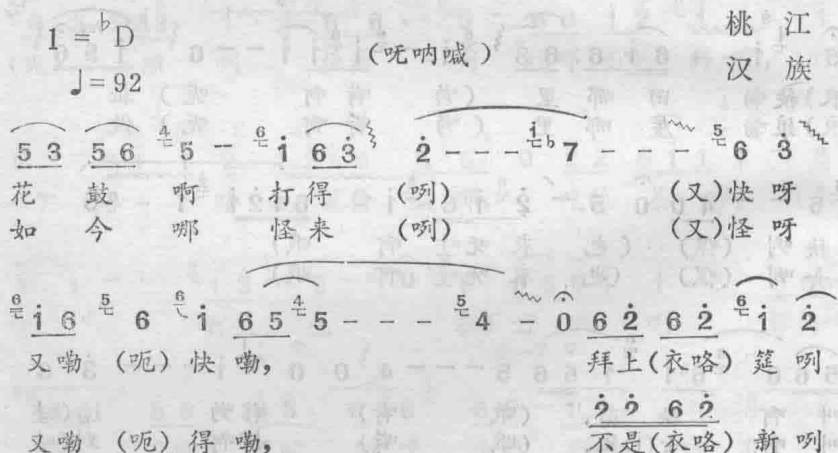 1 = ♭D
♩ = 92
(呒呐喊)
桃 江
汉 族
5 3 5 6 4 5 - - 6 i 6 3̇ 2̇ - - - i ♭7 - - - 5 6 3
花 鼓 啊 打得 (咧) (又)快 呀
如 今 哪 怪来 (咧) (又)怪 呀
6 i 6 5 6 6 i 6 5 4 5 - - - 5 4 - 0 6 2̇ 6 2̇ 6 i 2̇
又嘞 (呃) 快 嘞, 拜上(衣咯) 筵 咧
2̇ 2̇ 6 2̇
又嘞 (呃) 得 嘞, 不是(衣咯) 新 咧